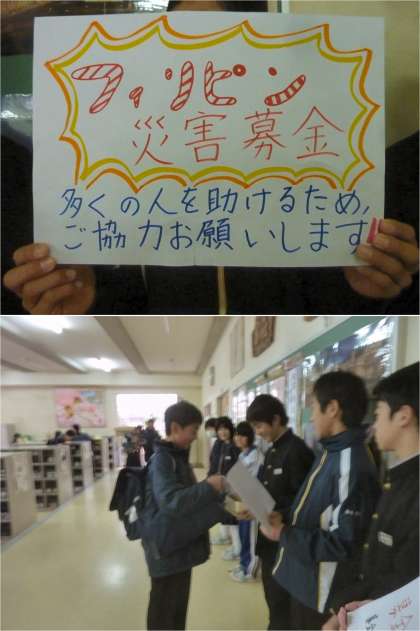 フィリピン
災害募金
多くの人を助けるため,
ご協力お願いします